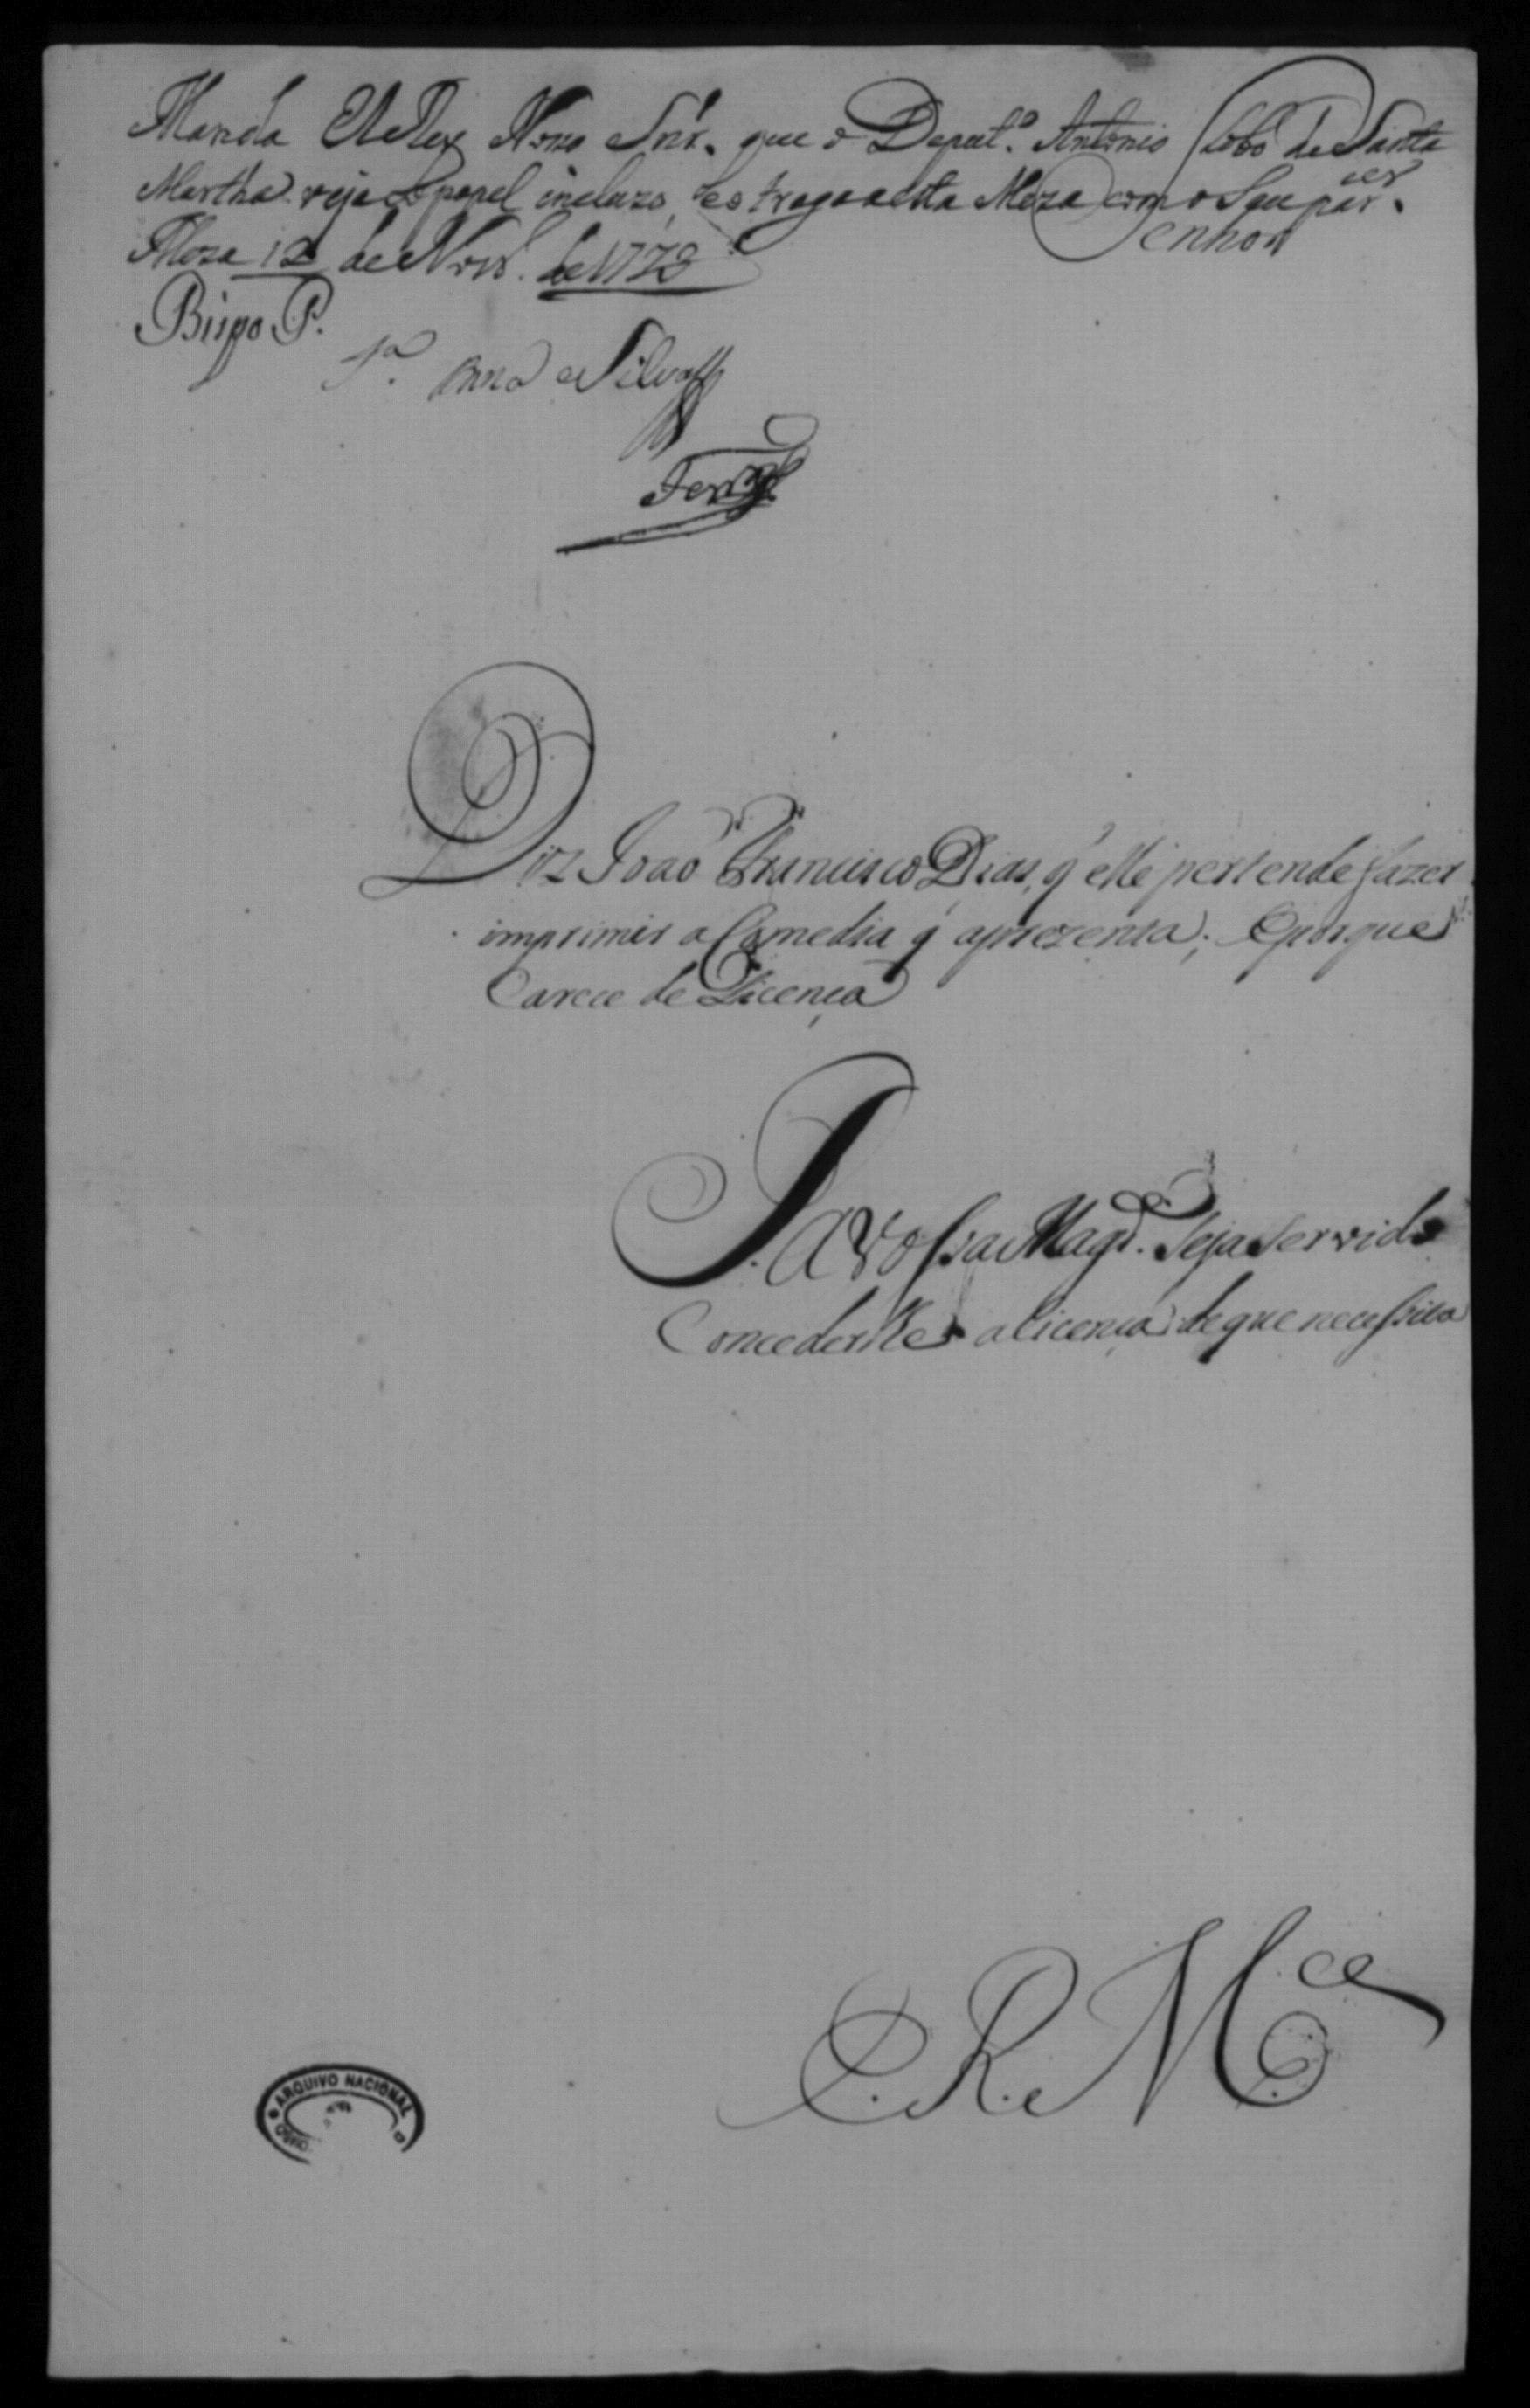 Manda ElRey Noso Snr. que o Deput.º Antonio Lobo de Santa
Martha veja o papel incluzo, e o traga a esta Meza com o Seu par.cer
Senhor
Meza 12 de Novb. de 1773
Bispo P.
Silva
Diz Joaõ Francisco Dias, q̃ elle pertende fazer
imprimir a Comedia q̃ aprezenta; Eporque
Carece de Licença
P. AVossa Magd.e Seja Servido
Concederlhe alicença de que necessita
E. R. M.ce
ARQUIVO NACIONAL